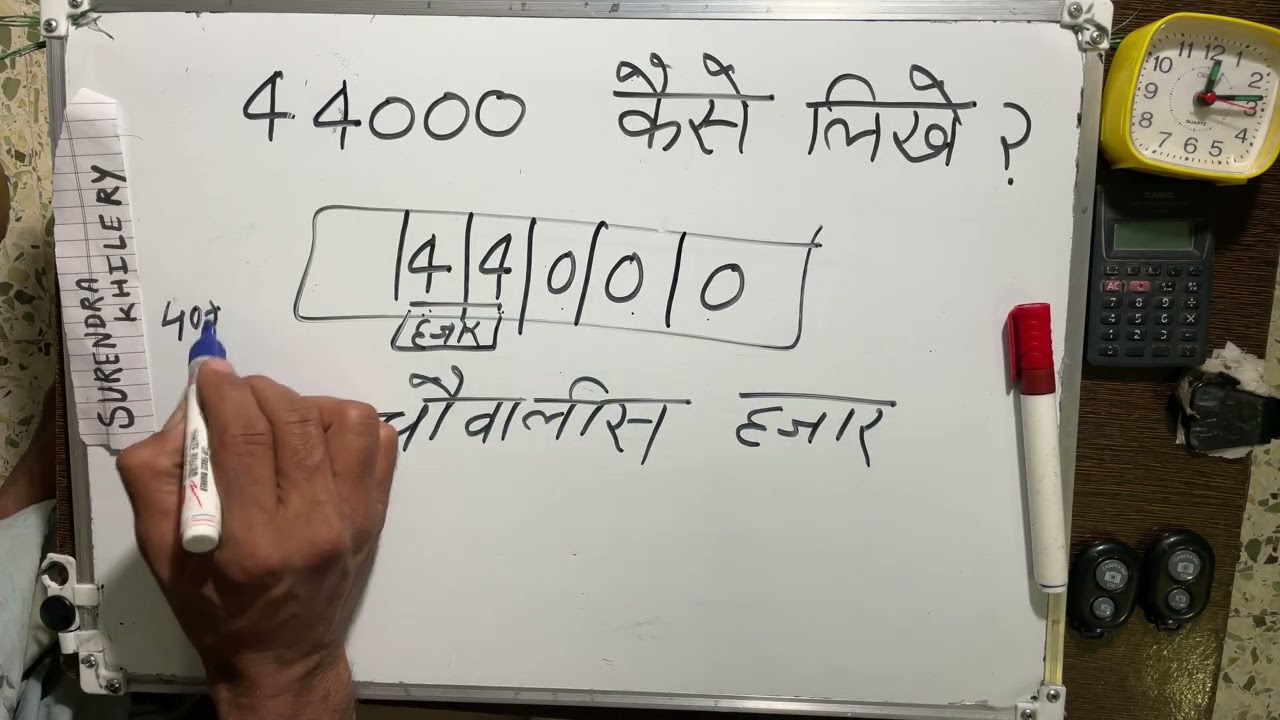 44000 कैसे लिखे ?
4 4 0 0 0
हजार
चौवालीस हजार
40+
SURENDRA
KHILERY
CASIO
QUARTZ
12
1
2
3
4
5
6
7
8
9
10
11